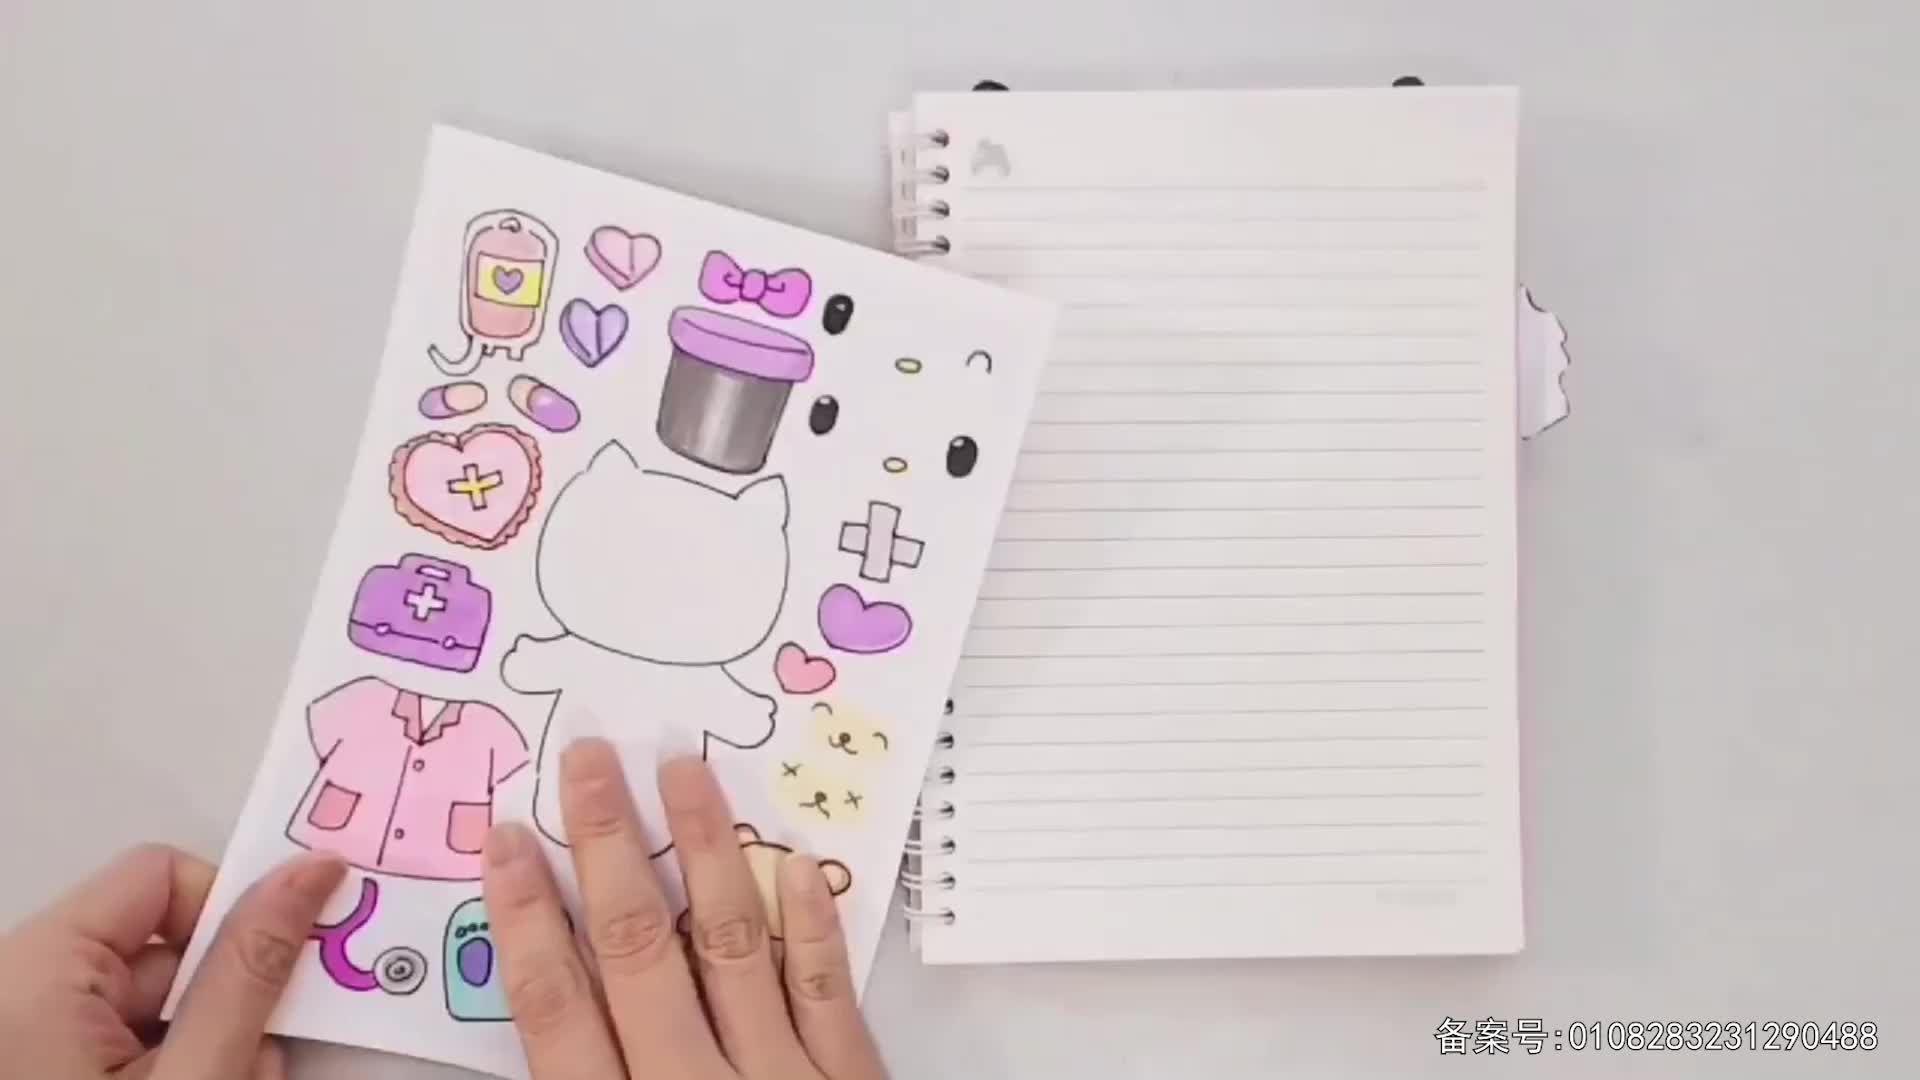 备案号:0108283231290488